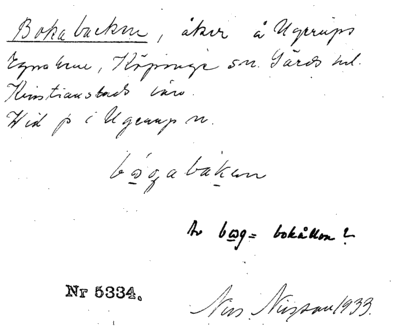 Bokabacken, åker å Ugerups
Egnahem, Köpinge sn. Gärds hd.
Kristianstads län.
Hid p i Ugerup n.
bǫgabákan
Av bǫg = bokållon?
Nr 5334.
Nils Nilsson 1933.